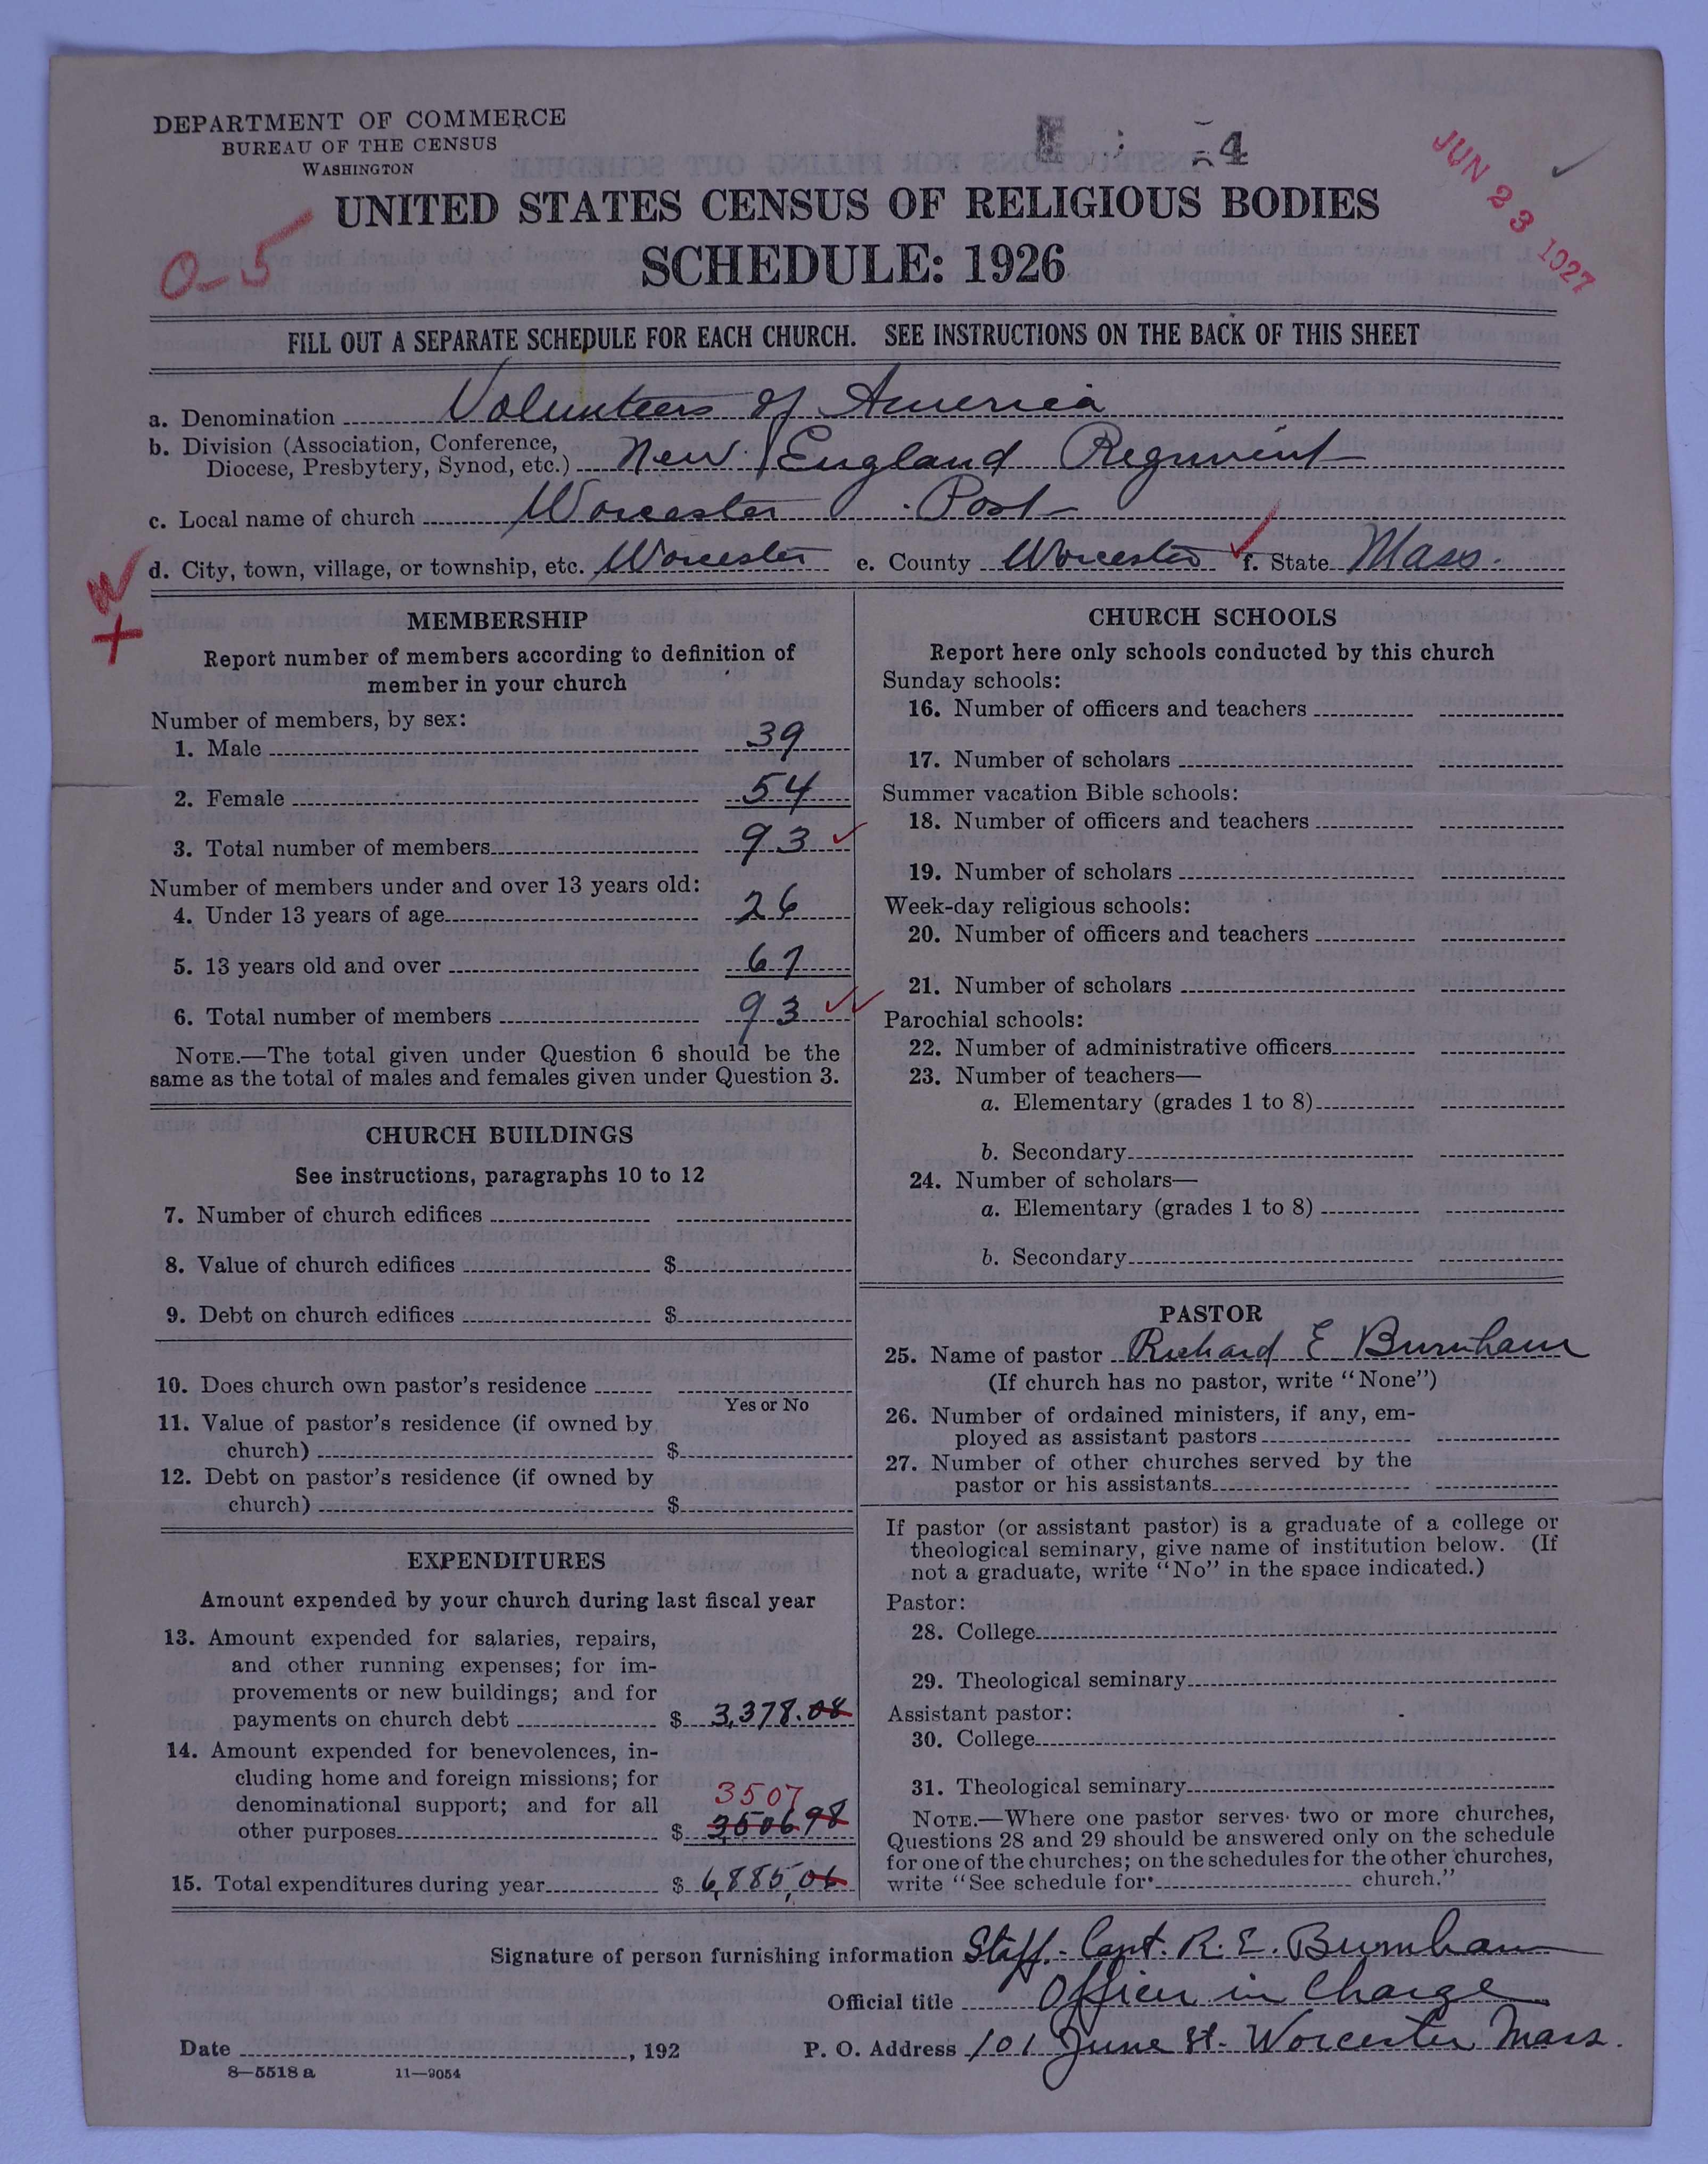 DEPARTMENT OF COMMERCE
BUREAU OF THE CENSUS
WASHINGTON
4
JUN 23 1927
UNITED STATES CENSUS OF RELIGIOUS BODIES
0-5
SCHEDULE: 1926
FILL OUT A SEPARATE SCHEDULE FOR EACH CHURCH. SEE INSTRUCTIONS ON THE BACK OF THIS SHEET
a. Denomination Volunteers of America
b. Division (Association, Conference,
Diocese, Presbytery, Synod, etc.) New England Regiment
c. Local name of church Worcester Post
d. City, town, village, or township, etc. Worcester e. County Worcester f. State Mass.
MEMBERSHIP
Report number of members according to definition of
member in your church
Number of members, by sex:
1. Male 39
2. Female 54
3. Total number of members 93
Number of members under and over 13 years old:
4. Under 13 years of age 26
5. 13 years old and over 67
6. Total number of members 93
NOTE.—The total given under Question 6 should be the
same as the total of males and females given under Question 3.
CHURCH BUILDINGS
See instructions, paragraphs 10 to 12
7. Number of church edifices
8. Value of church edifices $
9. Debt on church edifices $
10. Does church own pastor's residence
Yes or No
11. Value of pastor's residence (if owned by
church) $
12. Debt on pastor's residence (if owned by
church) $
EXPENDITURES
Amount expended by your church during last fiscal year
13. Amount expended for salaries, repairs,
and other running expenses; for im-
provements or new buildings; and for
payments on church debt $ 3,378.08
14. Amount expended for benevolences, in-
cluding home and foreign missions; for
denominational support; and for all
3507
other purposes $ 350698
15. Total expenditures during year $ 6,885,06
CHURCH SCHOOLS
Report here only schools conducted by this church
Sunday schools:
16. Number of officers and teachers
17. Number of scholars
Summer vacation Bible schools:
18. Number of officers and teachers
19. Number of scholars
Week-day religious schools:
20. Number of officers and teachers
21. Number of scholars
Parochial schools:
22. Number of administrative officers
23. Number of teachers—
a. Elementary (grades 1 to 8)
b. Secondary
24. Number of scholars—
a. Elementary (grades 1 to 8)
b. Secondary
PASTOR
25. Name of pastor Richard E Burnham
(If church has no pastor, write "None")
26. Number of ordained ministers, if any, em-
ployed as assistant pastors
27. Number of other churches served by the
pastor or his assistants
If pastor (or assistant pastor) is a graduate of a college or
theological seminary, give name of institution below. (If
not a graduate, write "No" in the space indicated.)
Pastor:
28. College
29. Theological seminary
Assistant pastor:
30. College
31. Theological seminary
NOTE.—Where one pastor serves two or more churches,
Questions 28 and 29 should be answered only on the schedule
for one of the churches; on the schedules for the other churches,
write "See schedule for church."
Signature of person furnishing information Staff-Capt. R. E. Burnham
Official title Officer in Charge
Date , 192 P. O. Address 101 June St. Worcester Mass.
8—5518 a 11—9054